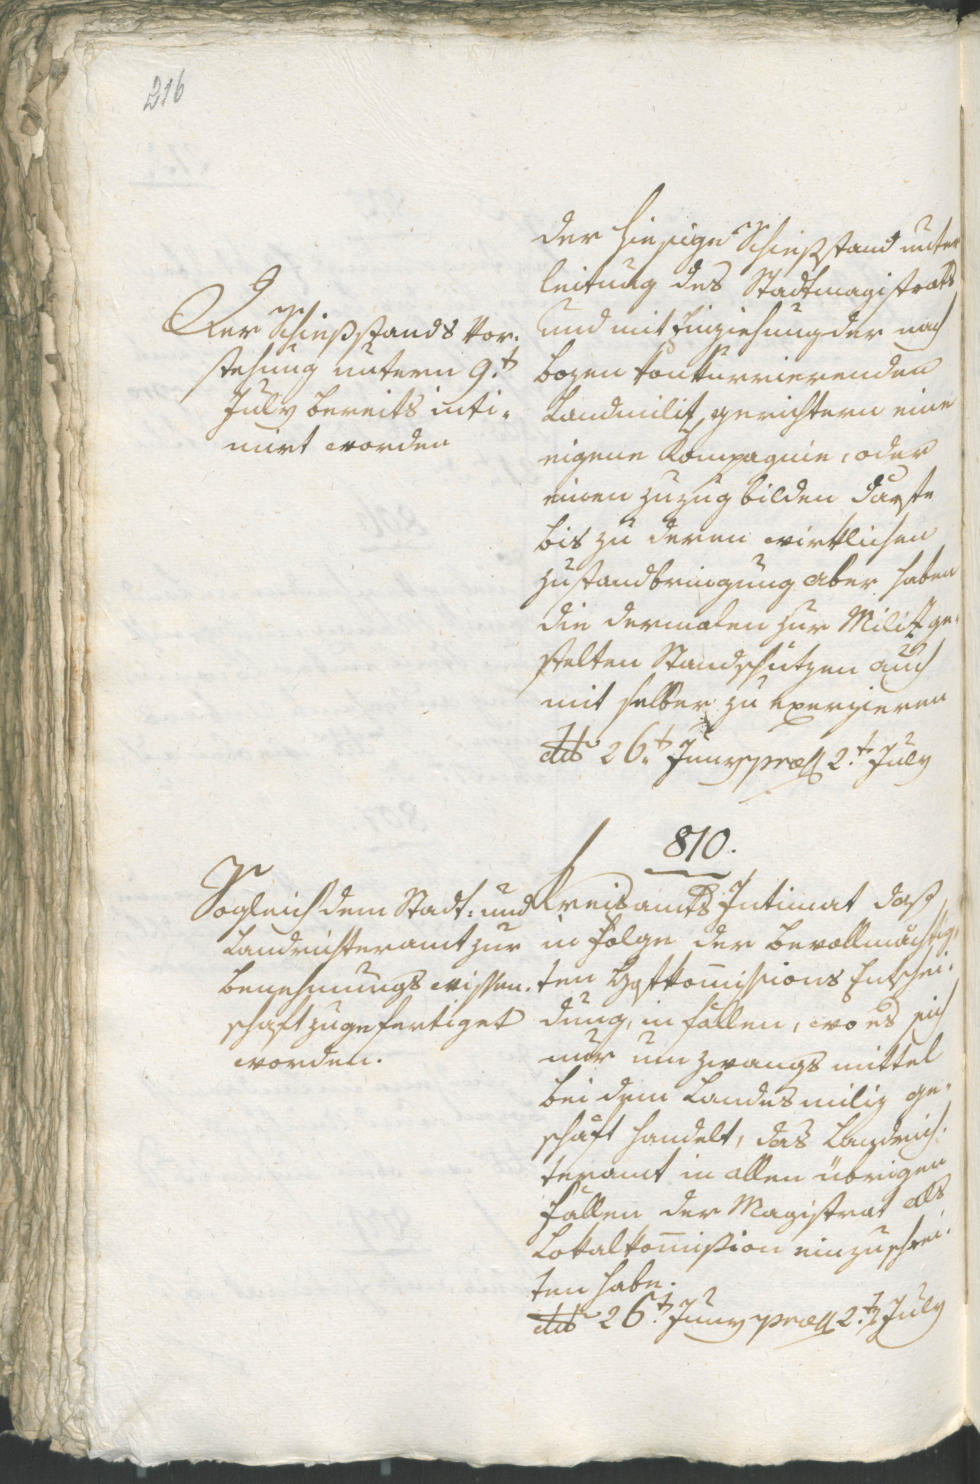 216
Der Schießstands Vor-
stehung untern 9.t
July bereits inti-
mirt worden
der hiesige Schießstand unter
leitung des Stadtmagistrats
und mit Einziehung der nach
bozen konkurrierenden
Landmilitz gerichtern eine
eigene Kompagnie, oder
einen zuzug bilden dürfte
bis zu deren wirklichen
zustandbringung aber haben
die dermalen zur Militz ge-
stelten Standschützen auch
mit selber zu exerzieren
dto 26.t Juny præs 2.t July
810.
Sogleich dem Stadt- und
Landrichteramt zur
benehmungs wissen-
schaft zugefertiget
worden.
Kreisamts Intimat daß
in Folge der bevollmächtig-
ten Hofkom̅issions Entschei-
dung, in fällen, wo es sich
nur um zwangs mittel
bei dem Landesmiliz ge-
schäft handelt, das Landrich-
teramt in allen übrigen
fällen der Magistrat als
Lokalkom̅ißion einzuschrei-
ten habe.
dto 26.t Juny præs 2.t July